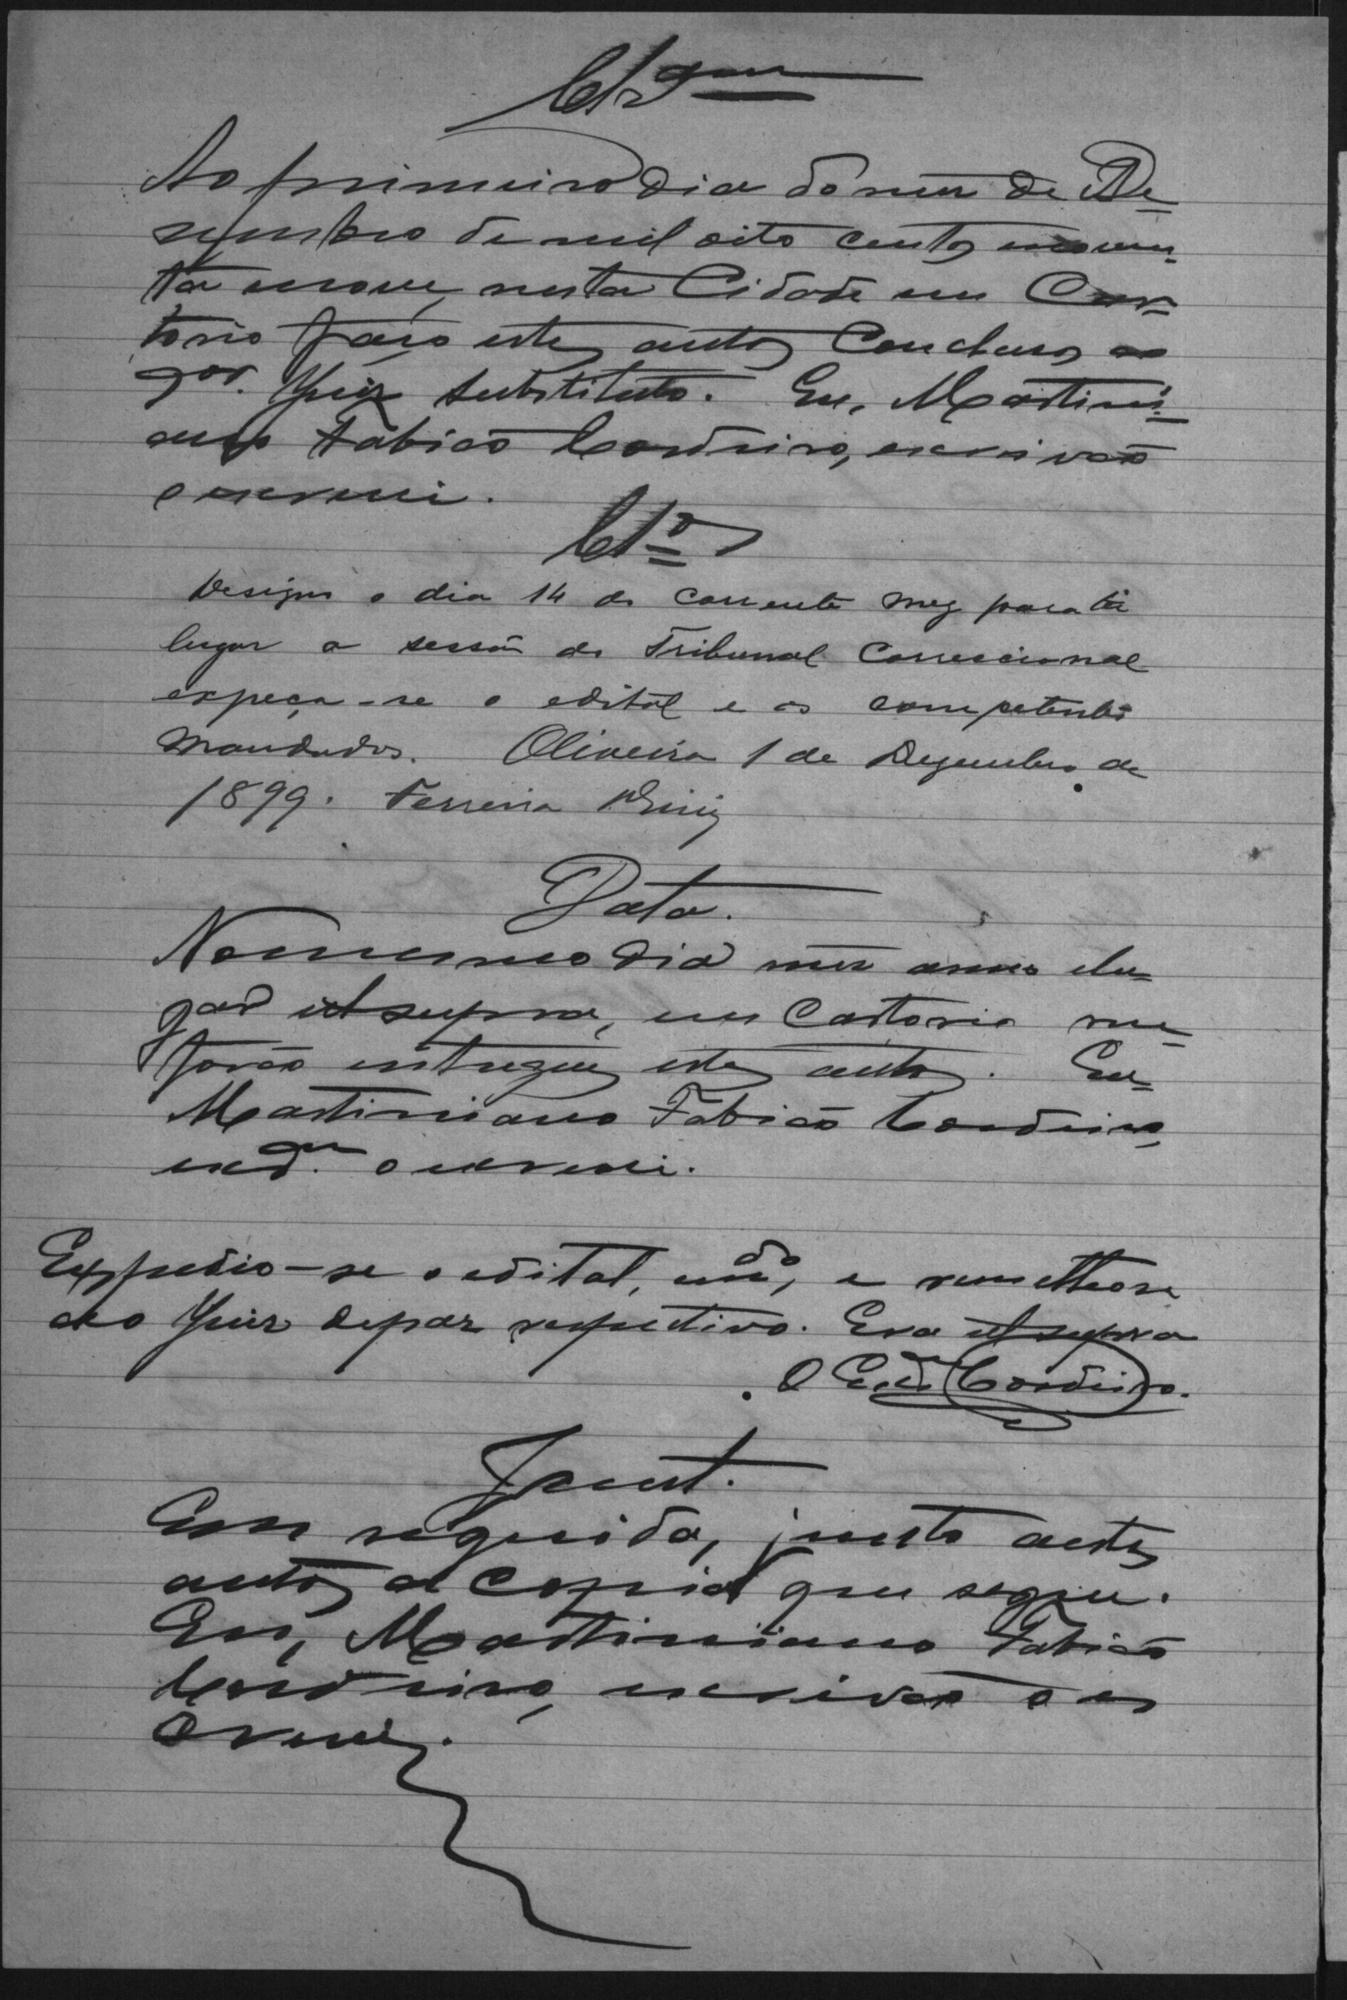 Cls.am
Ao primeiro dia do mez de De-
zembro de mil oito centos e noven-
ta e nove, nesta Cidade em Car-
torio faço estes autos Conclusos ao
Juiz substituto. Eu, Martini-
ano Fabião Cordeiro, escrivão
o escrevi.
Cl.o
Designo o dia 14 do corrente mez para ter
lugar a sessão do Tribunal Correccional
expeça-se o edital e os competentes
mandados. Oliveira 1 de Dezembro de
1899. Ferreira
Data.
No mesmo dia mez anno e lu-
gar ut supra, em Cartorio me
forão entregues estes autos. Eu
Martiniano Fabião Cordeiro,
o escrevi.
Expedio-se o edital, e remetteo-se
ao Juiz de paz respectivo. Era ut supra
O Escm Cordeiro.
Junt.
Em seguida, junto a estes
autos a copia que segue.
Eu, Martiniano Fabião
Cordeiro, escrivão o es
crevi.